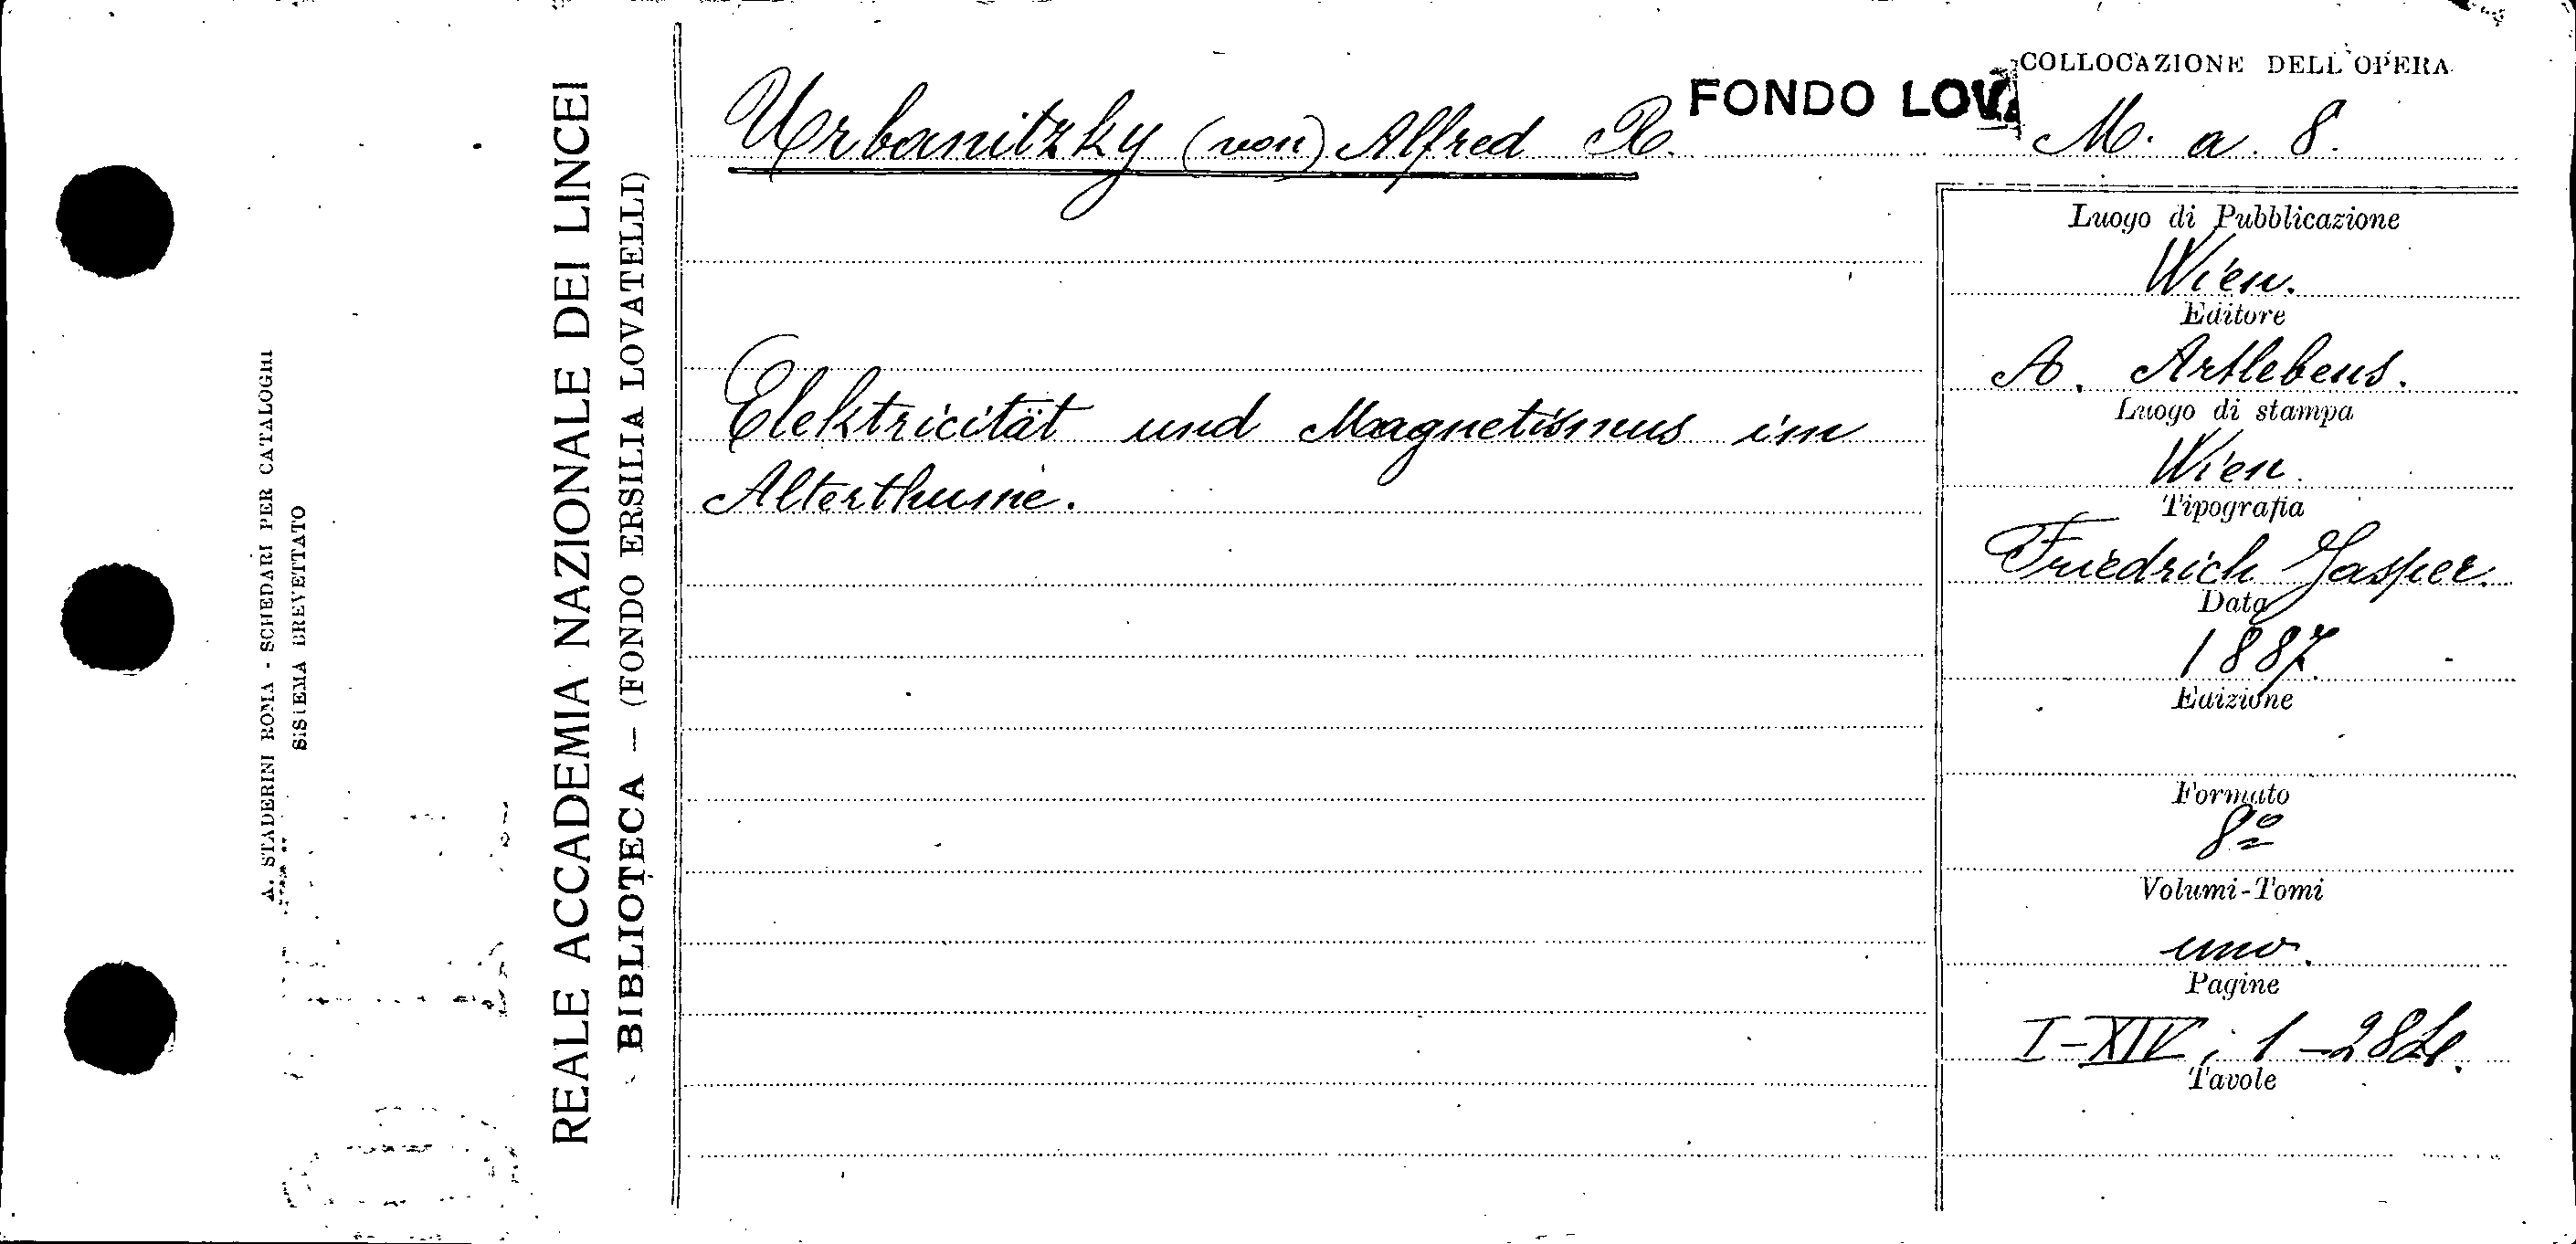 COLLOCAZIONE DELL'OPERA
FONDO LOV
Urbanitzky (von) Alfred R.
M. a. 8.
Elektricität und Magnetismus im
Alterthume.
Luogo di Pubblicazione
Wien.
Editore
A. Artlebens.
Luogo di stampa
Wien.
Tipografia
Friedrich Jasper.
Data
1887.
Edizione
Formato
8º
Volumi-Tomi
uno.
Pagine
I-XIV; 1-284.
Tavole
REALE ACCADEMIA NAZIONALE DEI LINCEI
BIBLIOTECA — (FONDO ERSILIA LOVATELLI)
A. STADERINI ROMA - SCHEDARI PER CATALOGHI
SISTEMA BREVETTATO